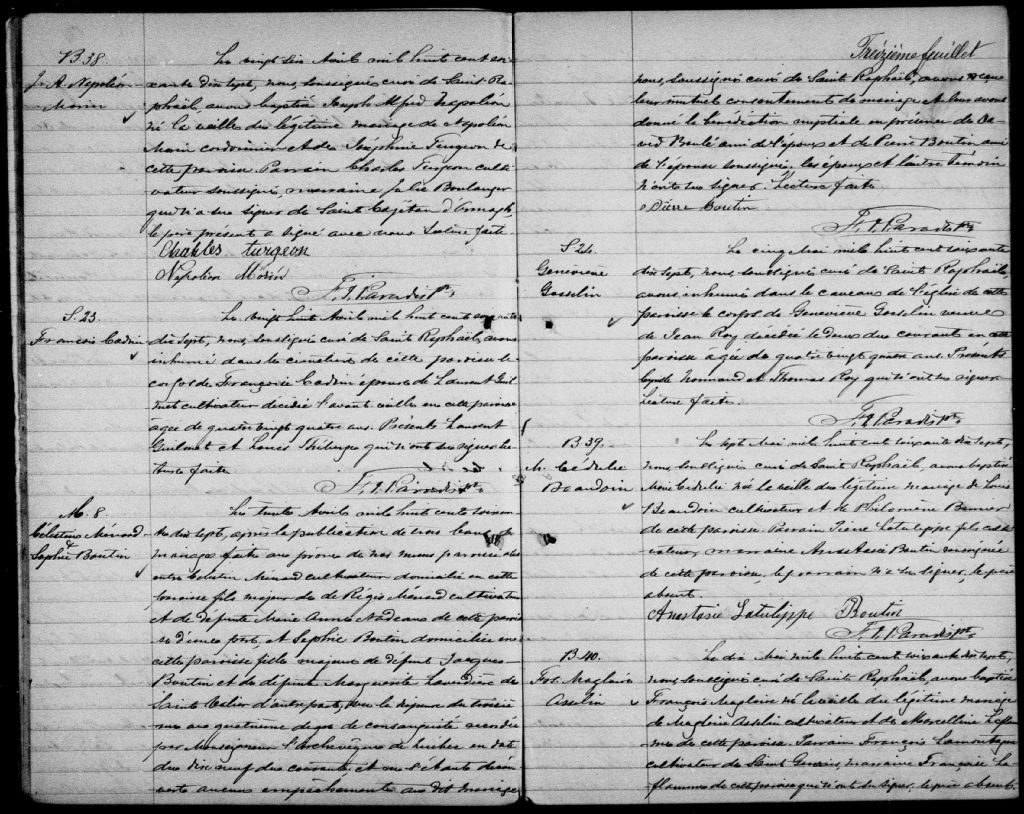 B 38.
J. A. Napoléon
Morin
Le vingt six Avril mil huit cent soi-
xante dix sept, nous, soussigné curé de Saint Ra-
phaël avons baptisé Joseph Alfred Napoléon
né la veille du légitime mariage de Napoléon
Morin cordonnier et de Joséphine Turgeon de
cette paroisse. Parrain Charles Turgeon culti-
vateur soussigné, marraine Julie Boulanger
qui n'a su signer de Saint Cajétan d'Armagh,
le père présent a signé avec nous. Lecture faite
Charles Turgeon
Napoléon Morin
F. X. Paradis Ptre
S. 23
Françoise Cadrin
Le vingt huit Avril mil huit cent soixante
dix sept, nous, soussigné curé de Saint Raphaël, avons
inhumé dans le cimetière de cette paroisse le
corps de Françoise Cadrin épouse de Laurent Guil-
met cultivateur décédée l'avant veille en cette paroisse
âgée de quatre vingt quatre ans. Présents Laurent
Guilmet et Louis Théberge qui n'ont su signer. Lec-
ture faite
F. X. Paradis Ptre
M. 8
Célestin Ménard
&
Sophie Boutin
Le trente Avril mil huit cent soixan-
te dix sept, après la publication de trois bans de
mariage faite au prone de nos messes paroissiales
entre Célestin Ménard cultivateur domicilié en cette
paroisse fils majeur de de Régis Ménard cultivateur
et de défunte Marie Anne Nadeau de cette parois-
se d'une part, et Sophie Boutin domiciliée en
cette paroisse fille majeure de défunt Jacques
Boutin et de défunte Marguerite de
Saint d'autre part, vu la dispense du troisiè-
me au quatrième degré de consanguinité accordée
par Monseigneur l'Archevêque de Québec en date
du dix neuf du courant et ne s'étant décou-
verte aucun empêchement au dit mariage
Treizième feuillet
nous, soussigné curé de Saint Raphaël, avons reçu
leur mutuel consentement de mariage et leur avons
donné la bénédiction nuptiale en présence de Da-
vid Boulé ami de l'époux et de Pierre Boutin ami
de l'épouse soussigné. les époux et l'autre témoin
n'ont su signer. Lecture faite
Pierre Boutin
F. X. Paradis Ptre
S. 24.
Geneviève
Gosselin
Le cinq Mai mil huit cent soixante
dix sept, nous, soussigné curé de Saint Raphaël
avons inhumé dans le caveau de l'église de cette
paroisse le corps de Geneviève Gosselin veuve
de Jean Roy décédée le deux du courant en cette
paroisse âgée de quatre vingt quatre ans. Présents
Normand et Thomas Roy qui n'ont su signer
Lecture faite.
F. X. Paradis Ptre
B 39.
M. Cédulie
Beaudoin
Le sept Mai mil huit cent soixante dix sept,
nous, soussigné curé de Saint Raphaël, avons baptisé
Marie Cédulie née la veille du légitime mariage de Louis
Beaudoin cultivateur et de Philomène
de cette paroisse. Parrain Pierre Latulippe fils culti-
vateur, marraine Anastasie Boutin soussignée
de cette paroisse. le parrain n'a su signer, le père
absent.
Anastasie Latulippe Boutin
F. X. Paradis Ptre
B 40.
Frs. Magloire
Asselin
Le dix Mai mil huit cent soixante dix sept,
nous, soussigné curé de Saint Raphaël, avons baptisé
François Magloire né la veille du légitime mariage
de Magloire Asselin cultivateur et de Marcelline Laflam-
me de cette paroisse. Parrain François Lamontagne
cultivateur de Saint Gervais, marraine Françoise La-
flamme de cette paroisse qui n'ont su signer. le père absent.